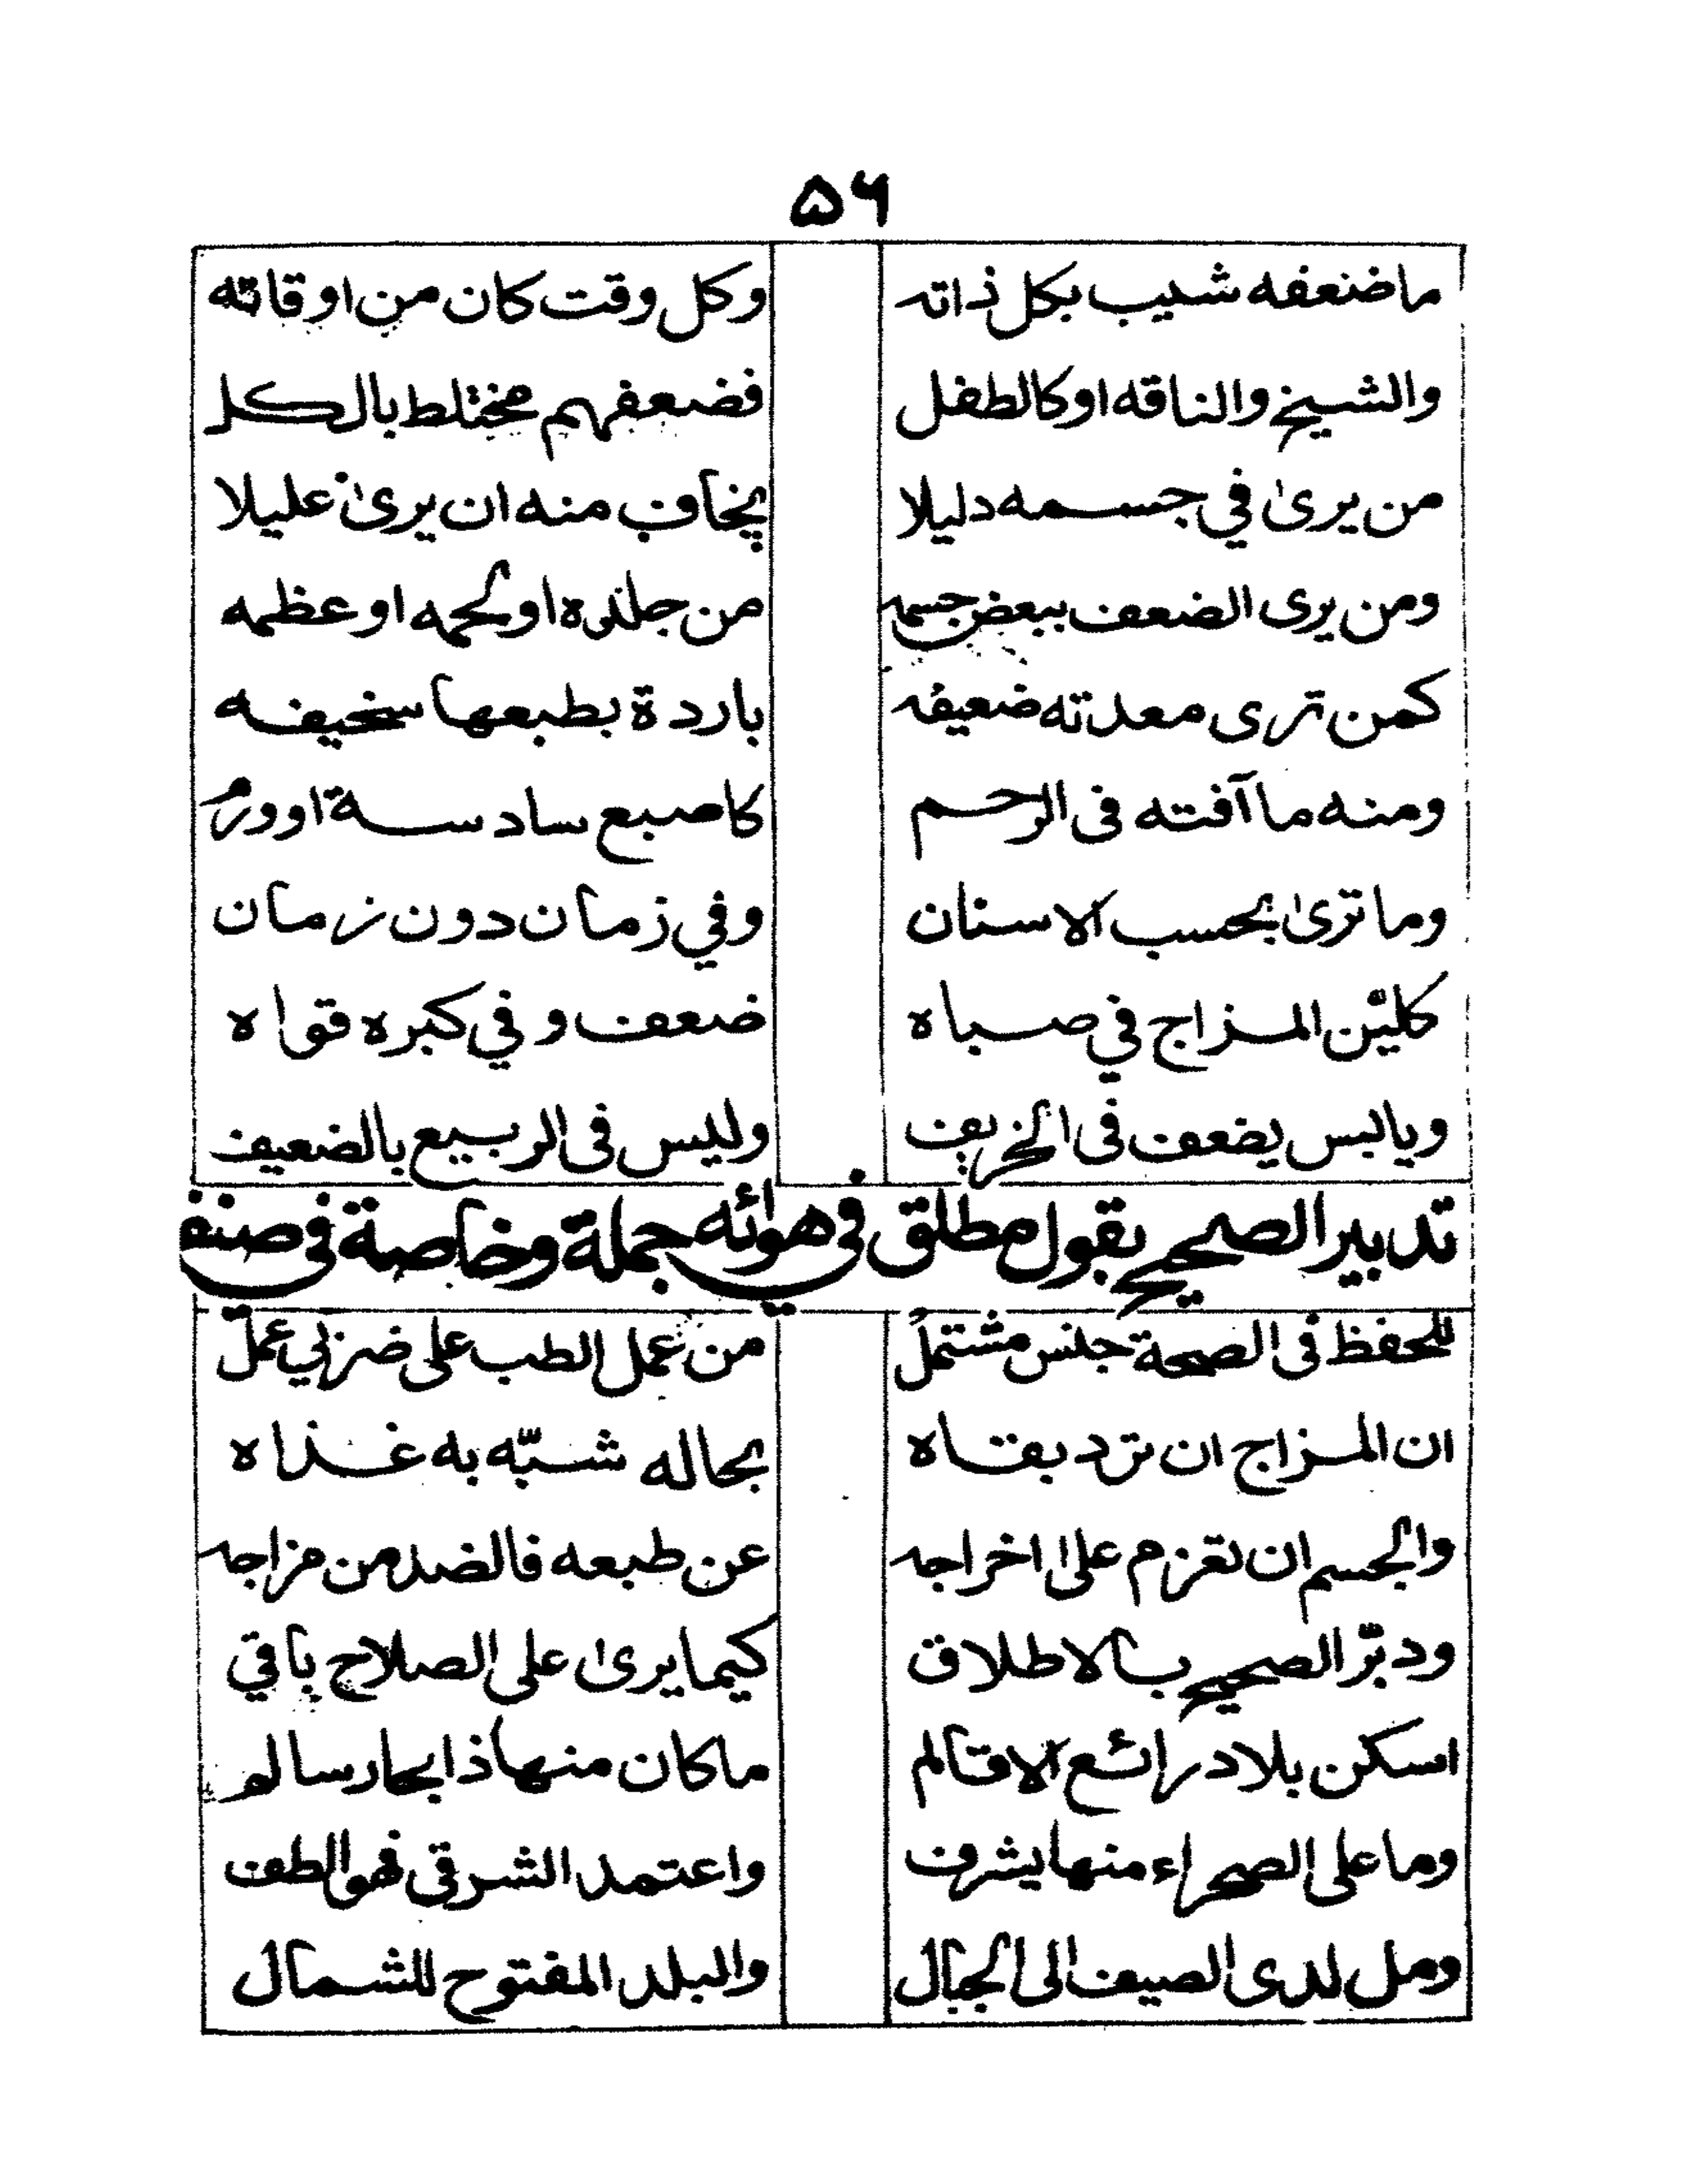 ۵۶
ماضنعفه شيب بكل ذاته وكل وقت كان من اوقاته
والشيخ والناقه اوكالطفل فضعفهم مختلط بالكل
من يرىٰ في جسمه دليلا يخاف منه ان يرىٰ عليلا
ومن يرى الضعف ببعض جسمه من جلده اولحمه اوعظمه
كمن ترى معدته ضعيفه باردة بطبعها سخيفه
ومنه ما آفته فى الرحم كاصبع سادسة اوورم
وما ترىٰ بحسب الاسنان وفي زمان دون زمان
كليّن المزاج في صباه ضعف وفي كبره قواه
ويابس يضعف فى الخريف وليس فى الربيع بالضعيف
تدبير الصحيح بقول مطلق في هوائه جملة وخاصة في صنف
للحفظ فى الصحة جنس مشتمل من عمل الطب على ضربي عمل
ان المزاج ان ترد بقاه بحاله شبّه به غذاه
والجسم ان تعزم علىٰ اخراجه عن طبعه فالضد من مزاجه
ودبّر الصحيح بالاطلاق كيما يرىٰ على الصلاح باقي
اسكن بلاد رائع الاقالم ماكان منها ذا بحار سالم
وما على الصحراء منها يشرف واعتمد الشرقى فهو الطف
ومل لدى الصيف الى الجبال والبلد المفتوح للشمال